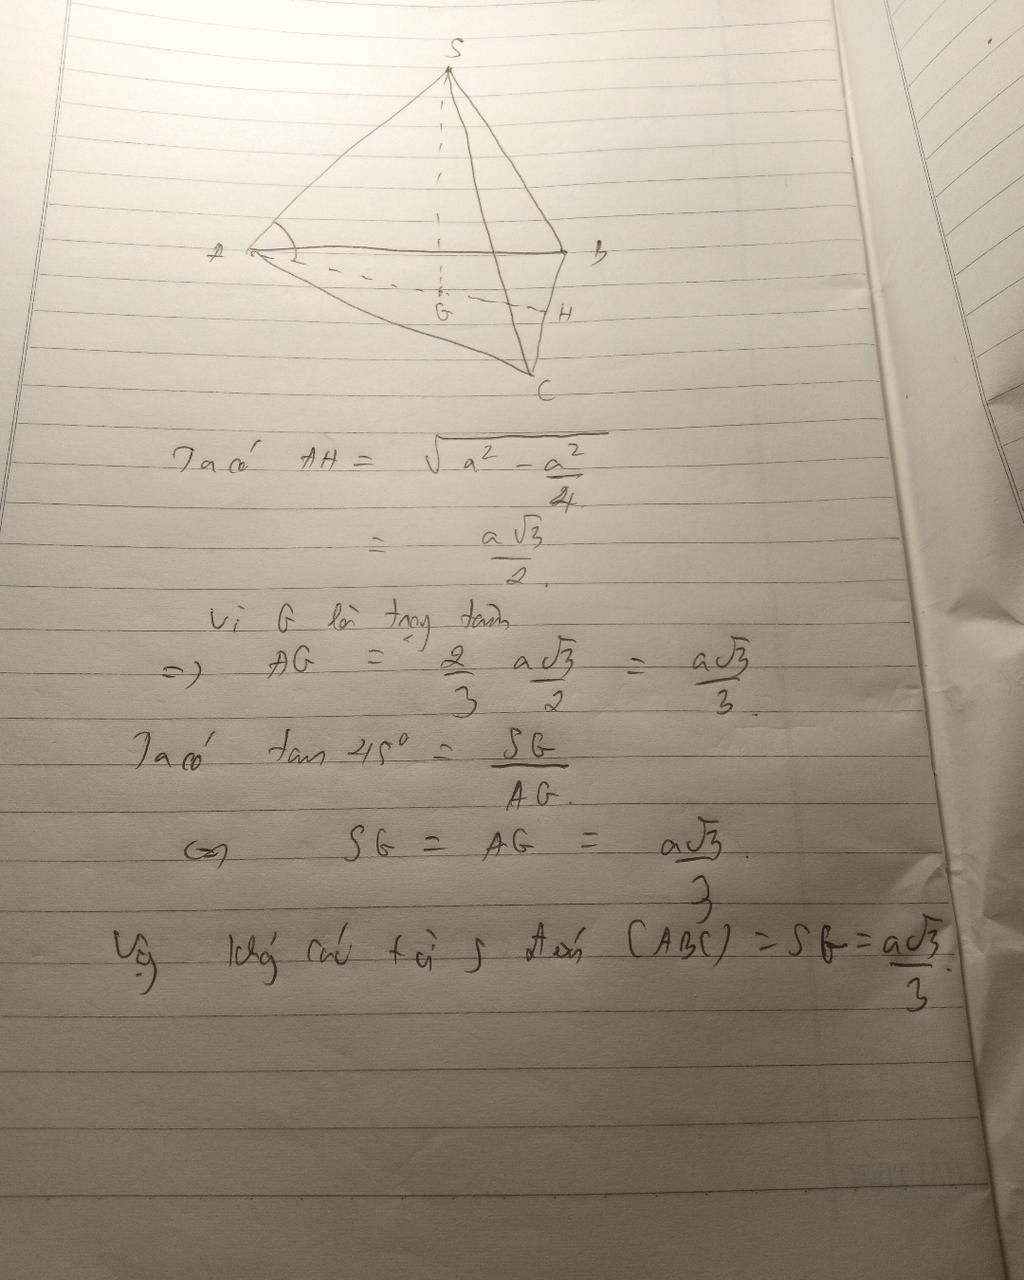 S
A
B
G
H
C
Ta có AH = √(a² - a²/4)
= a√3/2.
Vì G là trọng tâm
=> AG = 2/3 a√3/2 = a√3/3.
Ta có tan 45° = SG/AG.
<=> SG = AG = a√3/3.
Vậy khg cách từ S đến (ABC) = SG = a√3/3.